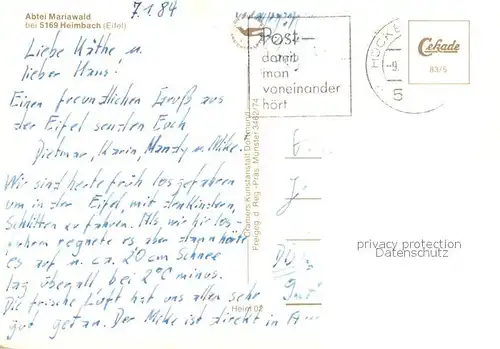 7.1.84
Abtei Mariawald
bei 5169 Heimbach (Eifel)
Liebe Käthe, u.
lieber Hans!
Einen freundlichen Gruß aus
der Eifel senden Euch
Dietmar, Karin, Mandy u. Mike.
Wir sind heute früh losgefahren
um in der Eifel, mit den Kindern,
Schlitten zu fahren. Als wir hir los-
fuhren regnete es aber dann hörte
es auf u. ca. 20 cm Schnee
lag überall, bei 2°C minus.
Die frische Luft hat uns allen sehr
gut getan. Der Mike ist direkt in
Post-
damit
man
voneinander
hört
HÜCKE
-9.
5
Cekade
83/5
Cramers Kunstanstalt Dortmund
Freigeg. d. Reg.-Präs. Münster 3482/74
Heim 02
privacy protection
Datenschutz